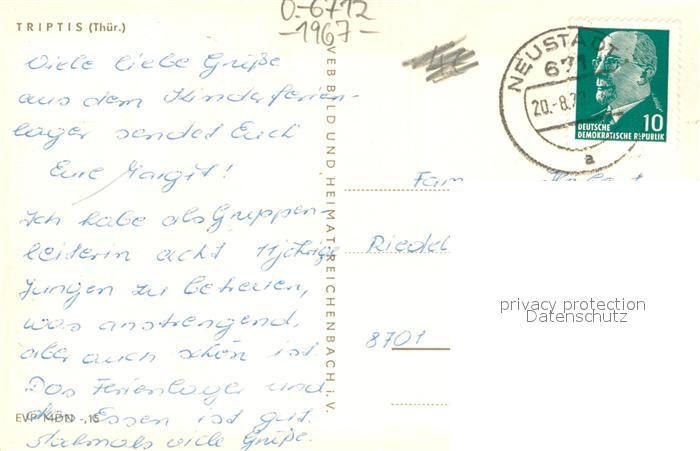 O-6712
-1967-
TRIPTIS (Thür.)
Viele liebe Grüße
aus dem Kinderferien-
lager sendet Euch
Eure Margit!
Ich habe als Gruppen-
leiterin acht 11jährige
Jungen zu betreuen,
was anstrengend,
aber auch schön ist.
Das Ferienlager und
Essen ist gut.
viele Grüße.
EVP MDN -,15
VEB BILD UND HEIMAT REICHENBACH i. V.
NEUSTADT
671
20.-8.
a
10
DEUTSCHE
DEMOKRATISCHE REPUBLIK
Fam
Riedel
8701
privacy protection
Datenschutz